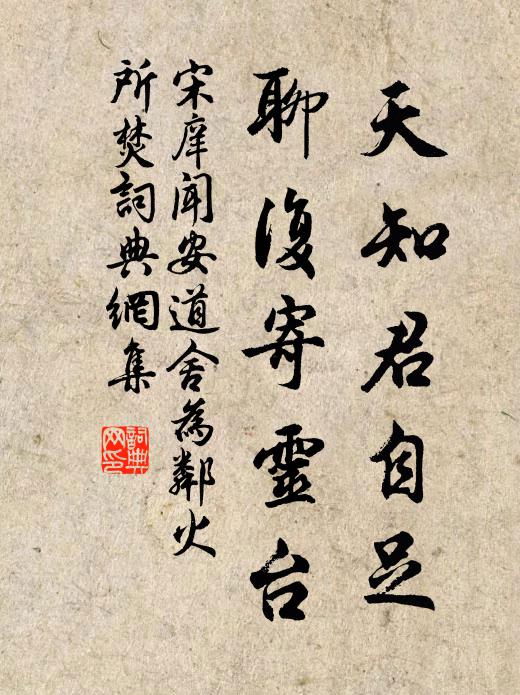 天知君自足
聊復寄靈台
宋庠聞安道舍為鄰火
所焚詞典網集
詞典
网印